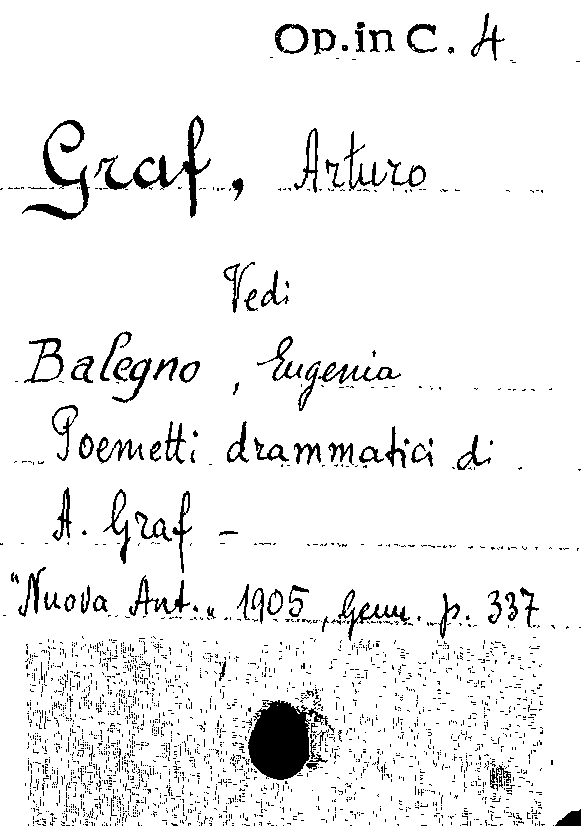 Op. in C. 4
Graf, Arturo
Vedi
Balegno, Eugenia
Poemetti drammatici di
A. Graf –
"Nuova Ant.„ 1905, Genn. p. 337